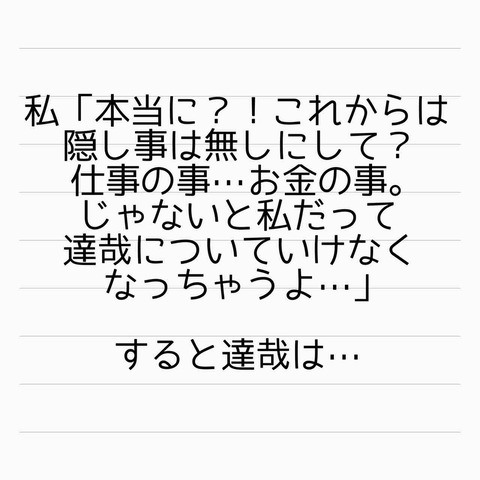 私「本当に？！これからは
隠し事は無しにして？
仕事の事…お金の事。
じゃないと私だって
達哉についていけなく
なっちゃうよ…」
すると達哉は…